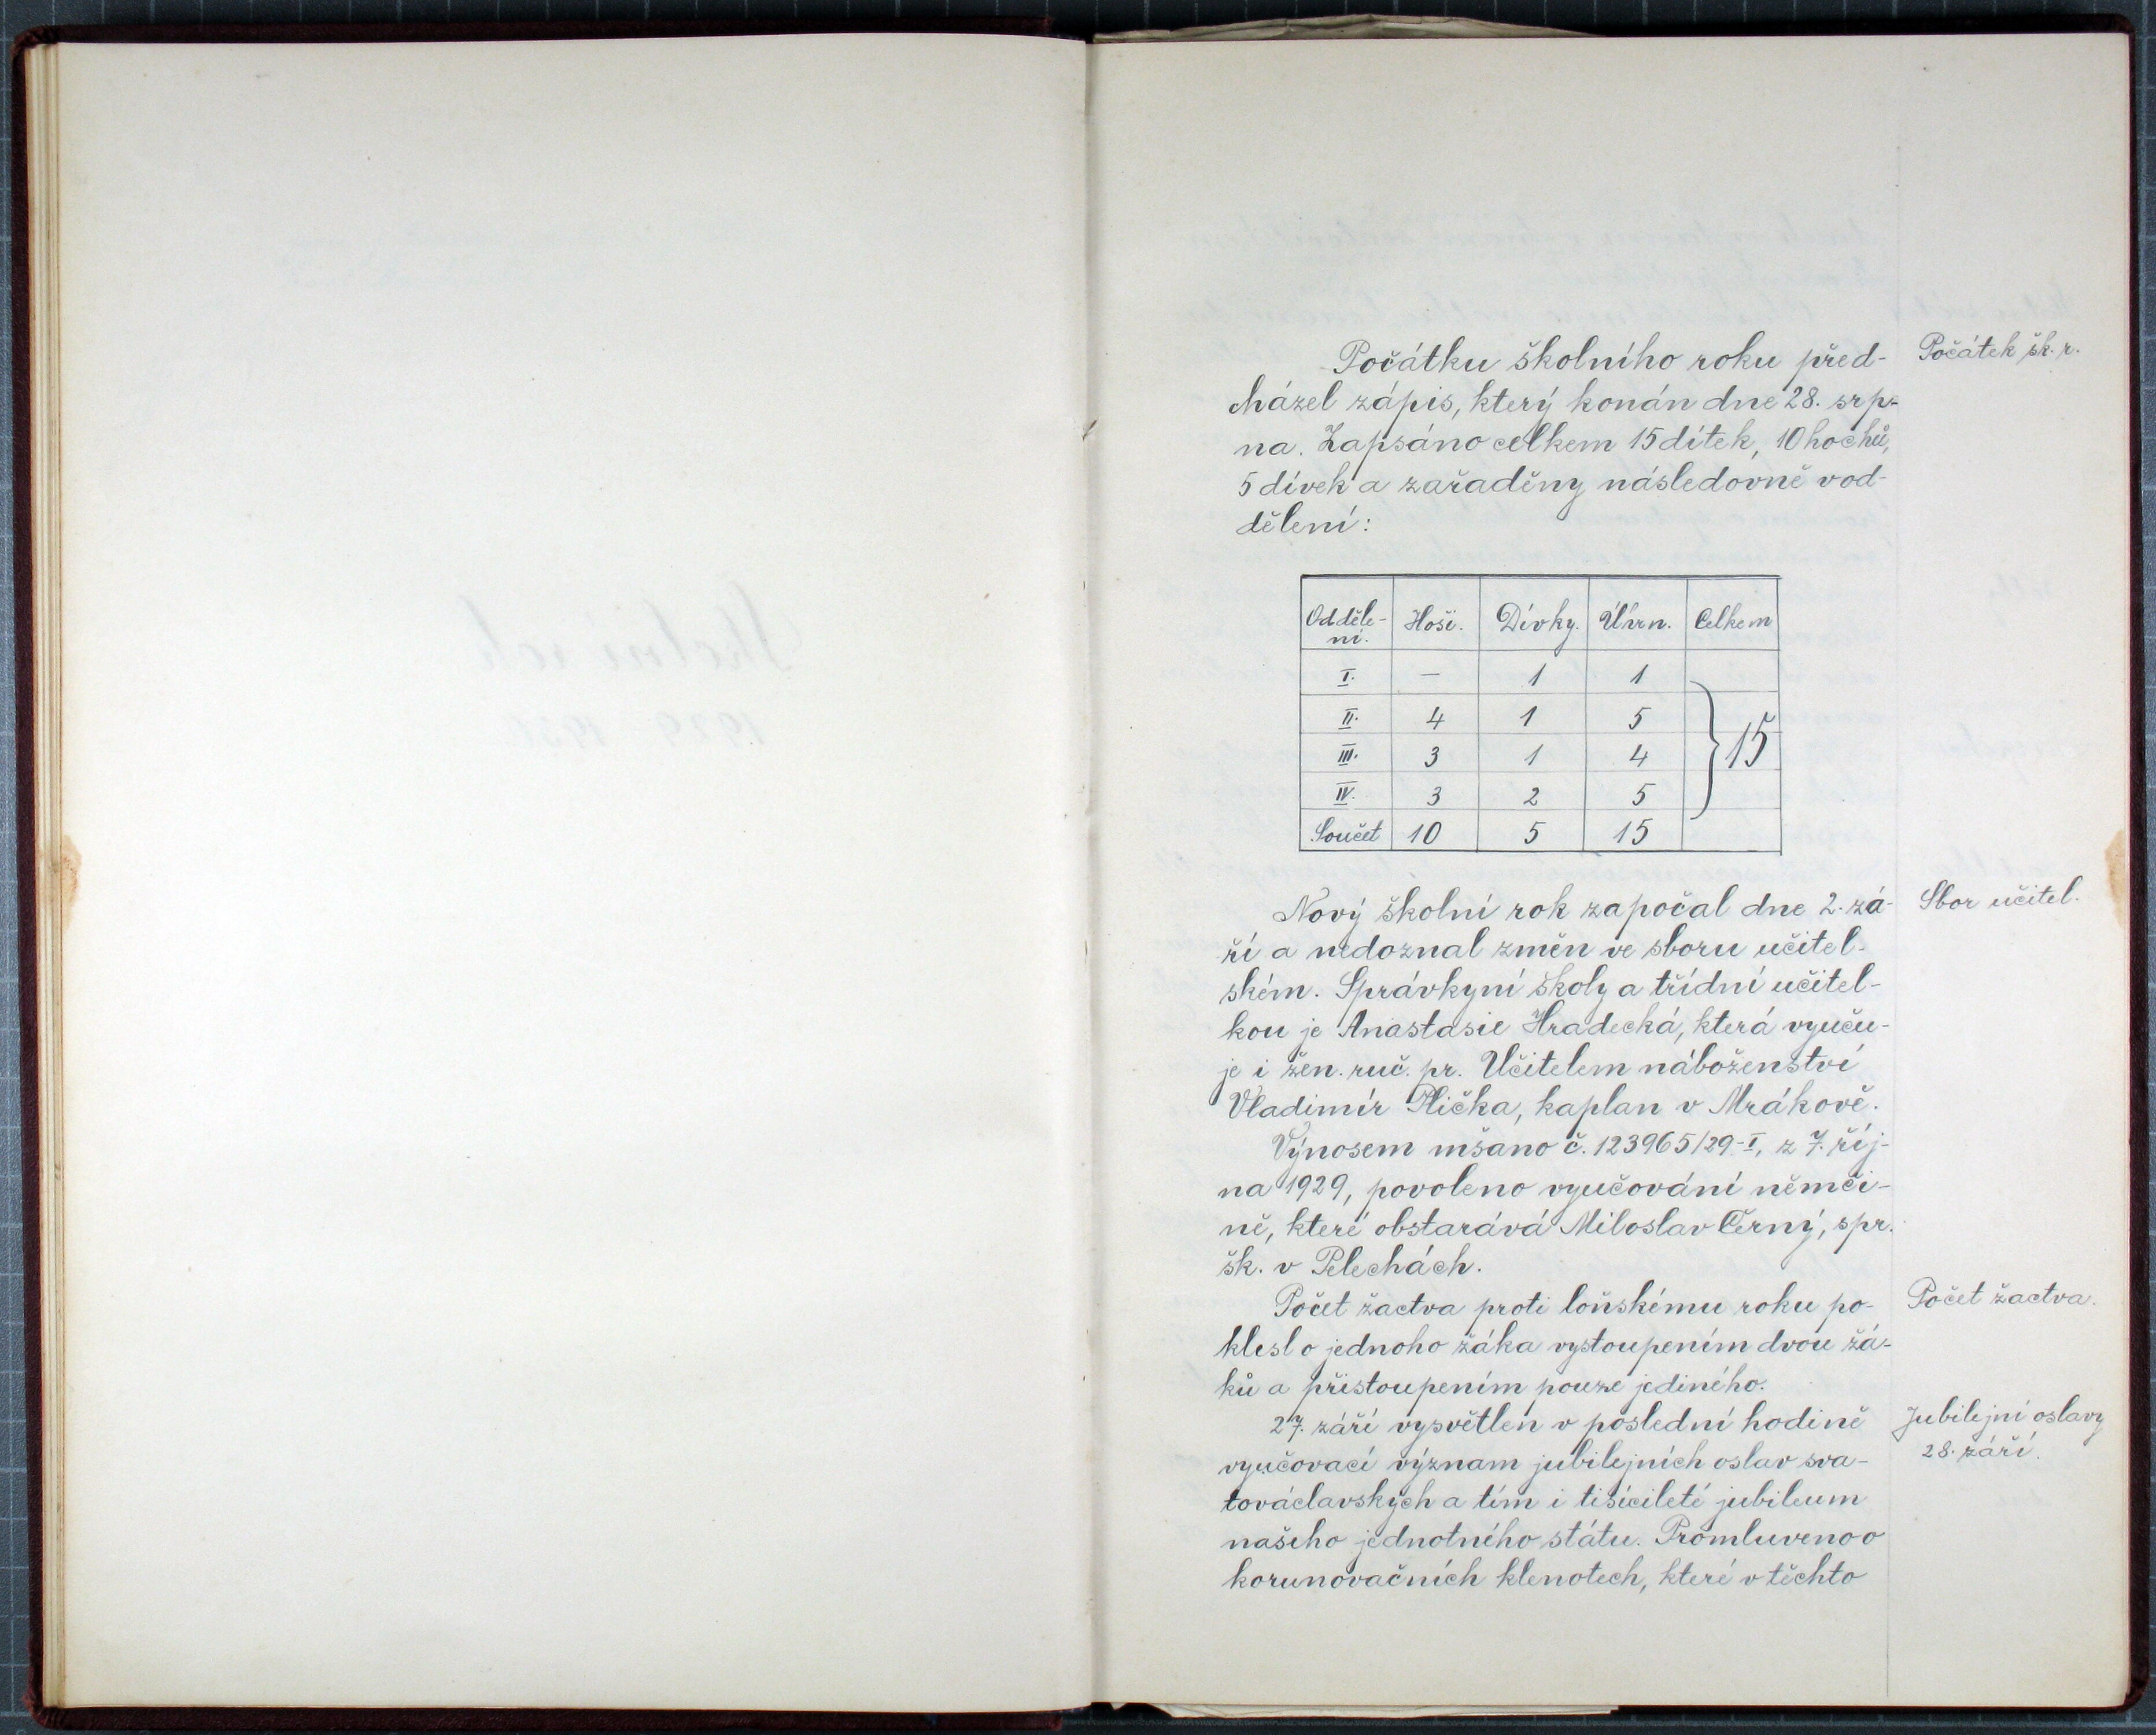 Počátku školního roku před-
cházel zápis, který konán dne 28. srp-
na. Zapsáno celkem 15 dítek, 10 hochů,
5 dívek a zařaděny následovně v od-
dělení:
Odděle-
ní. Hoši. Dívky. Úhrn. Celkem
I. — 1 1
II. 4 1 5
III. 3 1 4 } 15
IV. 3 2 5
Součet 10 5 15
Nový školní rok započal dne 2. zá-
ří a nedoznal změn ve sboru učitel-
ském. Správkyní školy a třídní učitel-
kou je Anastasie Hradecká, která vyuču-
je i žen. ruč. pr. Učitelem náboženství
Vladimír Plička, kaplan v Mrákově.
Výnosem mšano č. 123965/29-I, z 7. říj-
na 1929, povoleno vyučování němči-
ně, které obstarává Miloslav Černý, spr.
šk. v Pelechách.
Počet žactva proti loňskému roku po-
klesl o jednoho žáka vystoupením dvou žá-
ků a přistoupením pouze jediného.
27. září vysvětlen v poslední hodině
vyučovací význam jubilejních oslav sva-
továclavských a tím i tisícileté jubileum
našeho jednotného státu. Promluveno o
korunovačních klenotech, které v těchto
Počátek šk. r.
Sbor učitel.
Počet žactva.
Jubilejní oslavy
28. září.